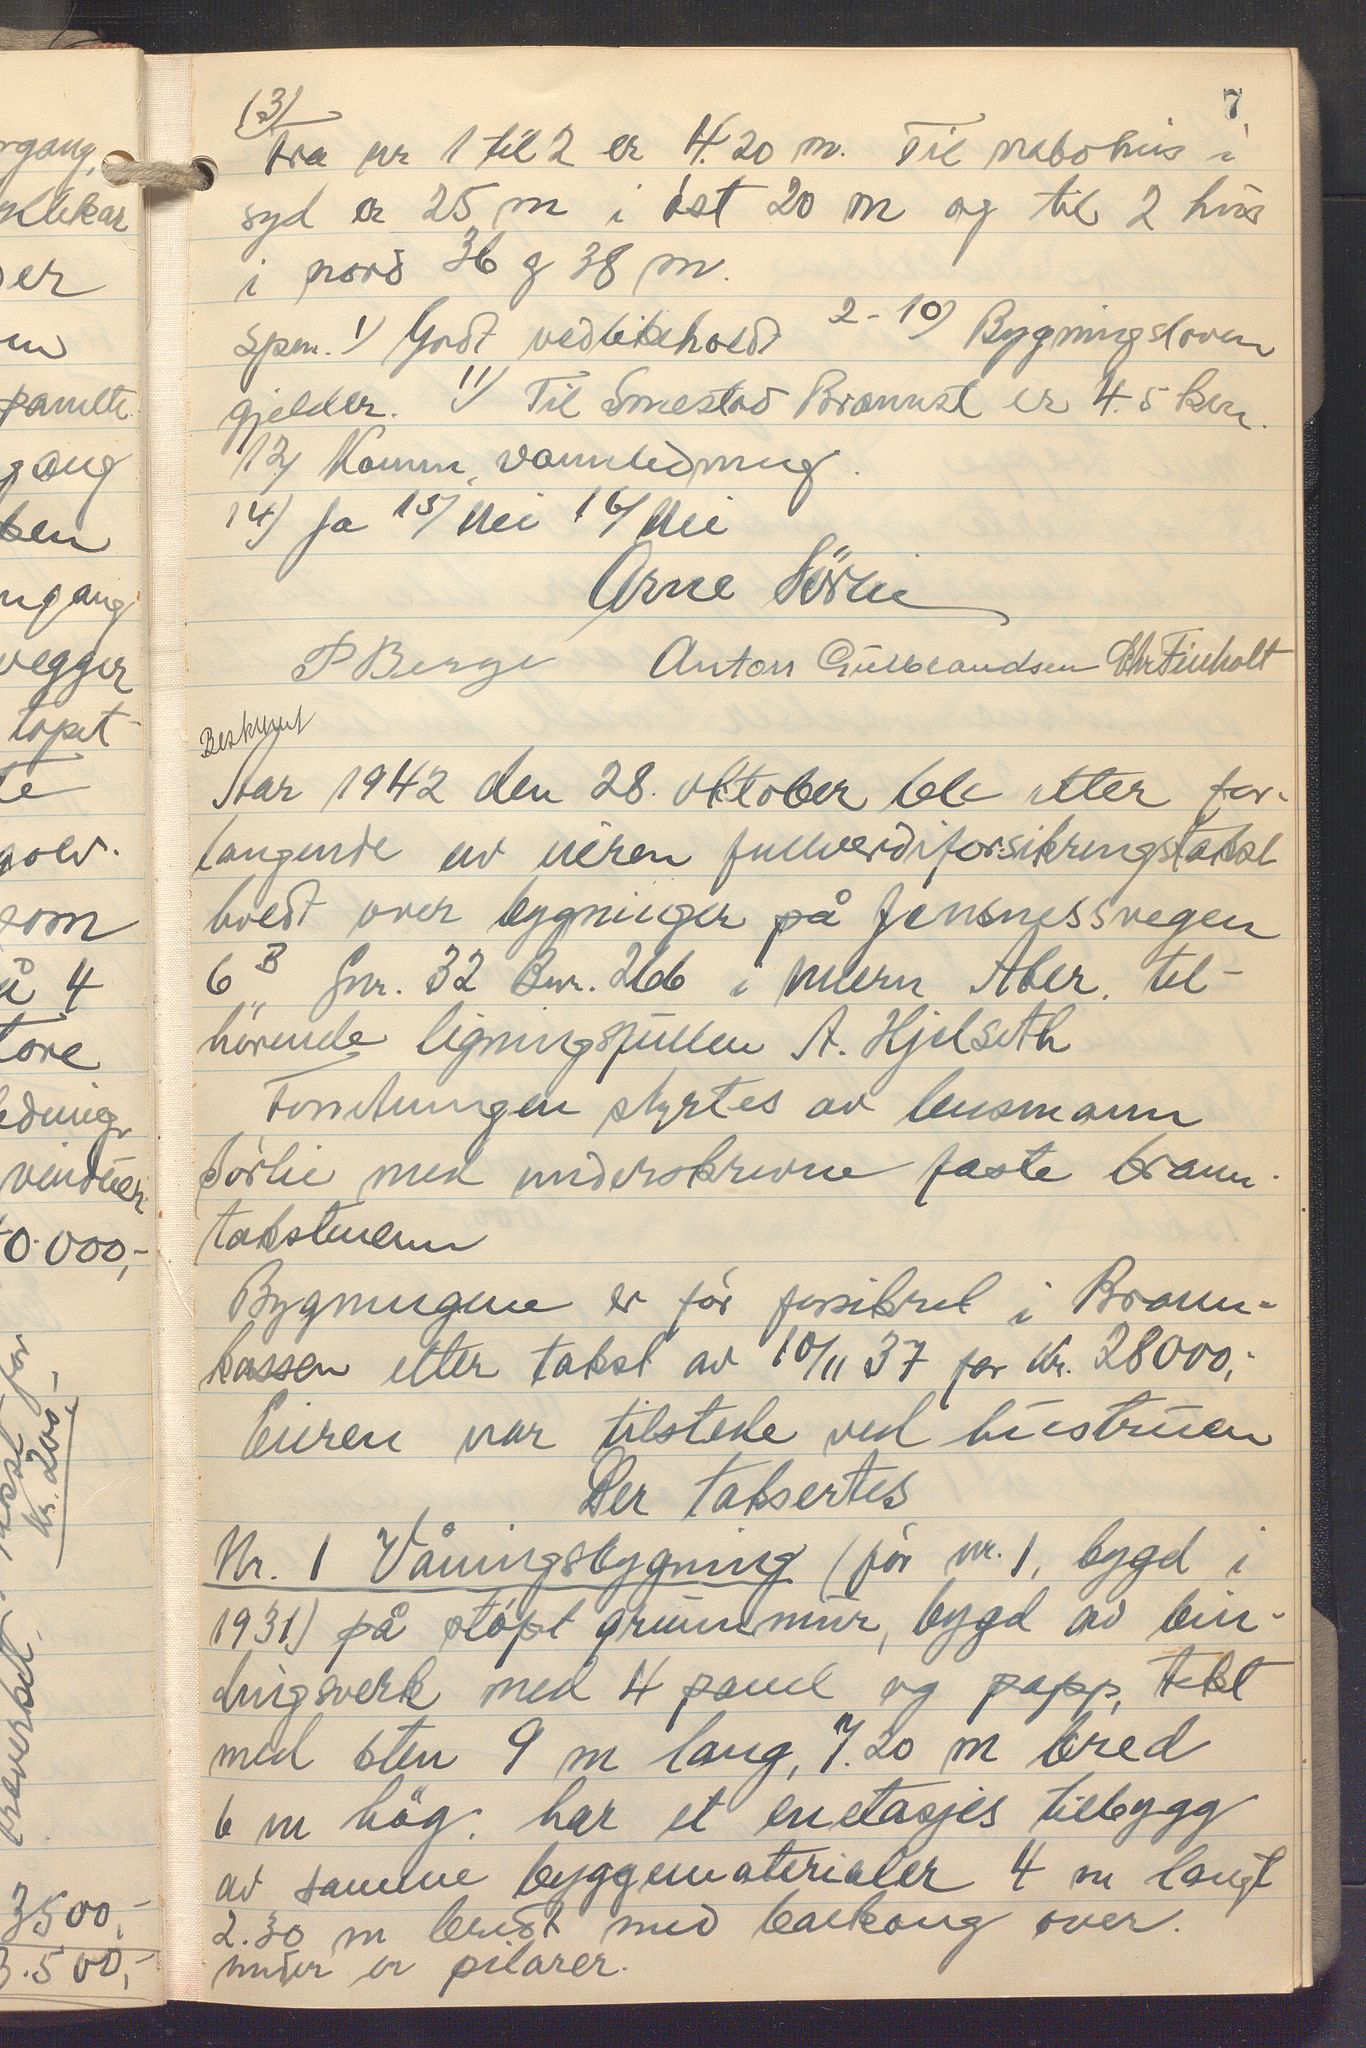 7
13)
Fra nr 1 til 2 er 4.20 m. Til nabohus i
syd er 25 m i öst 20 m og til 2 hus
i nord 36 g 38 m.
Spm. 1) Godt vedlikeholdt 2-10) Bygningsloven
gjelder. 11) Til Smestad Brannst er 4.5 km.
12) Komm. vannledning.
14) Ja 15) Nei 16) Nei
Arne Sörlie
P Berge Anton Gulbrandsen Chr Finholt
Beskrevet
Aar 1942 den 28. oktober ble etter for-
langende av eieren fullverdiforsikringstakst
holdt over bygninger på Jensnessvegen
6 B Gnr. 32 Bnr. 266 i Aker. til-
hörende ligningsfullm A. Hjelseth
Forretningen styrtes av lensmann
Sörlie med underskrevne faste brann-
takstmenn
Bygningene er för forsikret i Brann-
kassen etter takst av 10/11 37 for kr. 28000,-
Eieren var tilstede ved hustruen
Der taksertes
Nr. 1 Våningsbygning (för nr. 1, bygd i
1931) på stöpt grunnmur, bygd av bin-
dingsverk med 4 panel og papp, tekt
med sten 9 m lang, 7.20 m bred
6 m hög. har et enetasjes tilbygg
av samme byggematerialer 4 m langt
2.30 m bredt med balkong over.
under er pilarer.
rgang,
er
panelte
gang
ngang
vegger
tapet-
som
4
vinduer
0.000,-
kr. 200,-
3500,-
3.500,-